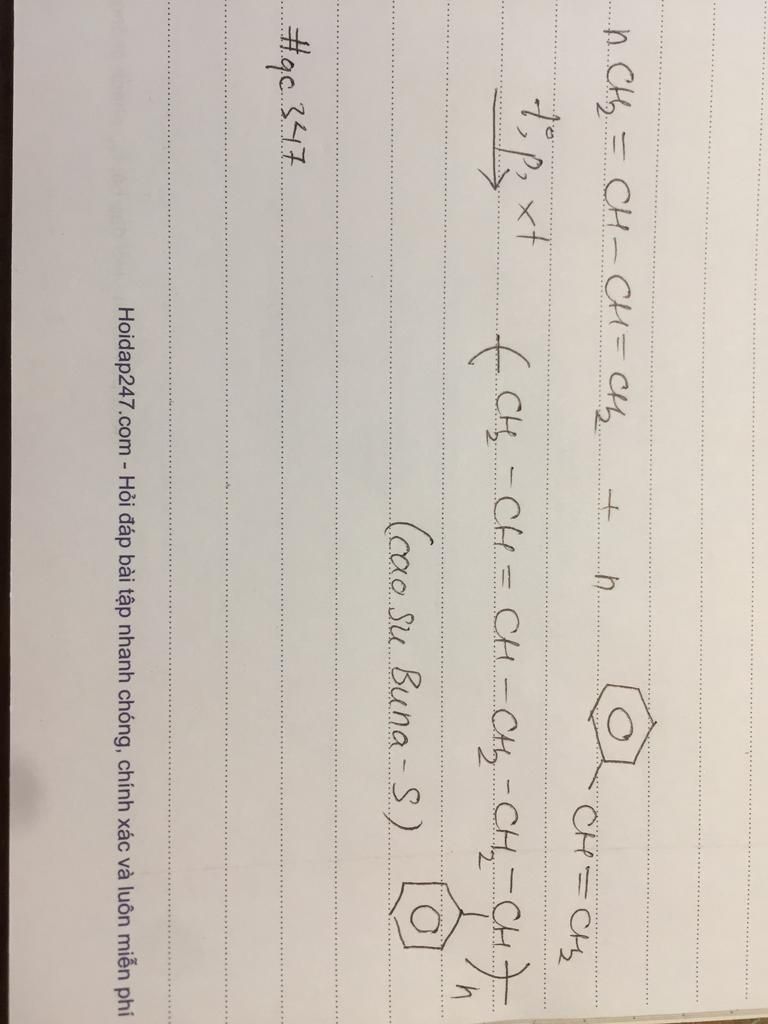 n CH₂ = CH – CH = CH₂ + n CH = CH₂
t°, p, xt
→ ( CH₂ – CH = CH – CH₂ – CH₂ – CH )n
(cao su Buna – S)
#qc 347
Hoidap247.com - Hỏi đáp bài tập nhanh chóng, chính xác và luôn miễn phí